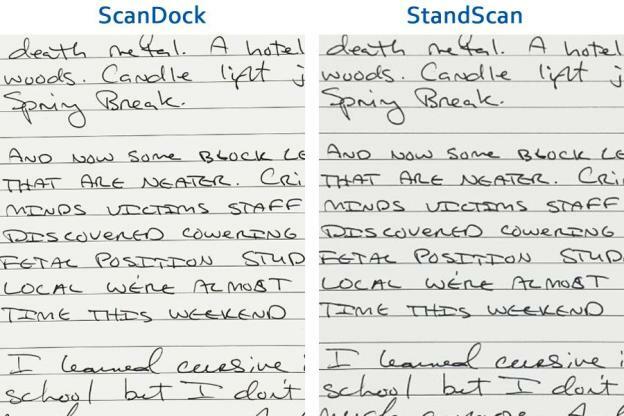 ScanDock
death metal. A hotel
woods. Candle light j
Spring Break.
AND NOW SOME BLOCK LE
THAT ARE NEATER. CRI
MINDS VICTIMS STAFF
DISCOVERED COWERING
FETAL POSITION STUD
LOCAL WE'RE ALMOST
TIME THIS WEEKEND
I learned cursive i
school but I don't
StandScan
death metal. A hotel
woods. Candle light j
Spring Break.
AND NOW SOME BLOCK LE
THAT ARE NEATER. CRI
MINDS VICTIMS STAFF
DISCOVERED COWERING
FETAL POSITION STUD
LOCAL WE'RE ALMOST
TIME THIS WEEKEND
I learned cursive i
school but I don't